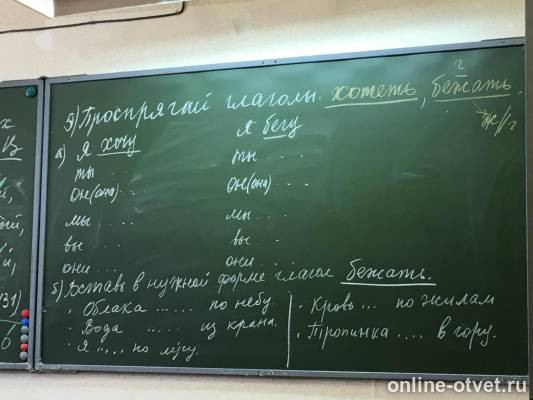 г
5) Проспрягай глаголы. хотеть, бежать.
ж//г
а) Я хочу
ты ....
он(она) ...
мы ....
вы ....
они ....
Я бегу
ты ....
он(она) ...
мы ...
вы ...
они ....
б) Вставь в нужной форме глагол бежать.
· Облака ...... по небу.
· Вода ..... из крана.
· Я ..... по лугу.
· Кровь ... по жилам
· Тропинка .... в гору.
х
31)
online-otvet.ru